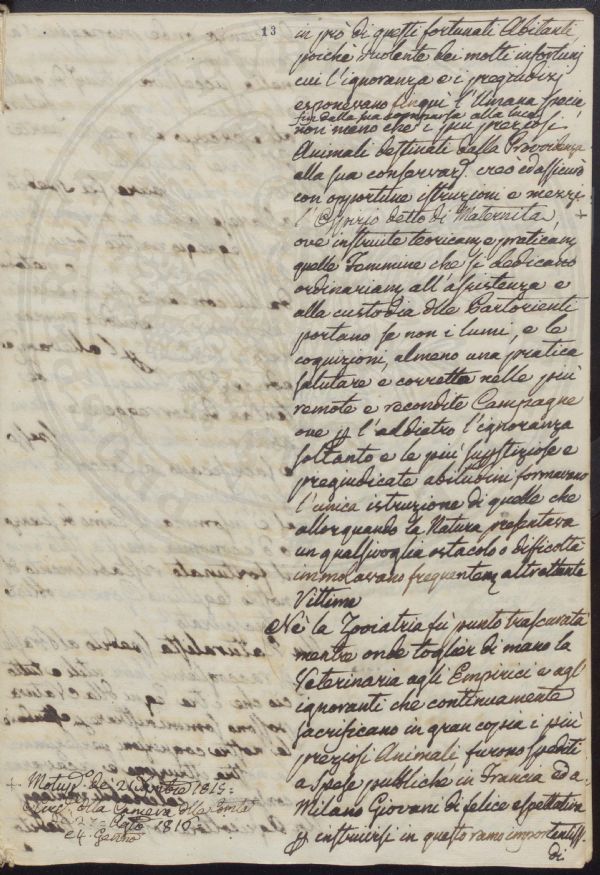 13
in prò di questi fortunati Abitanti,
poichè dolente dei molti infortunj
cui l'ignoranza e i pregiudizj
esponevano finquì l'Umana specie
fin dalla sua comparsa alla luce,
non meno che i più preziosi
Animali destinati dalla Provvidenza
alla sua conservaz. creò ed assicurò
con opportune istruzioni e mezzi
l'Ospizio detto di Maternità, +
ove instruite teoricam. e praticam.
quelle Femmine che si dedicano
ordinariam. all'assistenza e
alla custodia delle Partorienti
portano se non i lumi, e le
cognizioni, almeno una pratica
salutare e corretta nelle più
remote e recondite Campagne
ove p l'addietro l'ignoranza
soltanto e le più suppstiziose e
pregiudicate abitudini formavano
l'unica istruzione di quelle che
allorquando la Natura presentava
un qualsivoglia ostacolo o difficoltà
immolavano frequentem. altrettante
Vittime
Nè la Zooiatria fù punto trascurata
mentre onde toglier di mano la
Veterinaria agli Empirici e agl'
ignoranti che continuamente
sacrificano in gran copia i più
preziosi Animali furono spediti
a spese pubbliche in Francia ed a
Milano Giovani di felice espettativa
p instruirsi in questo ramo importantiss.
di
+ Motup. de' 2 1815=
della Camera della
27= 1816
e 4.